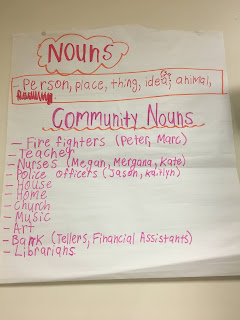 Nouns
- Person, place, thing, idea, animal,
Community Nouns
- Fire fighters (Peter, Marc)
- Teacher
- Nurses (Megan, Mergana, Kate)
- Police officers (Jason, Kaitlyn)
- House
- Home
- Church
- Music
- Art
- Bank (Tellers, Financial Assistants)
- Librarians